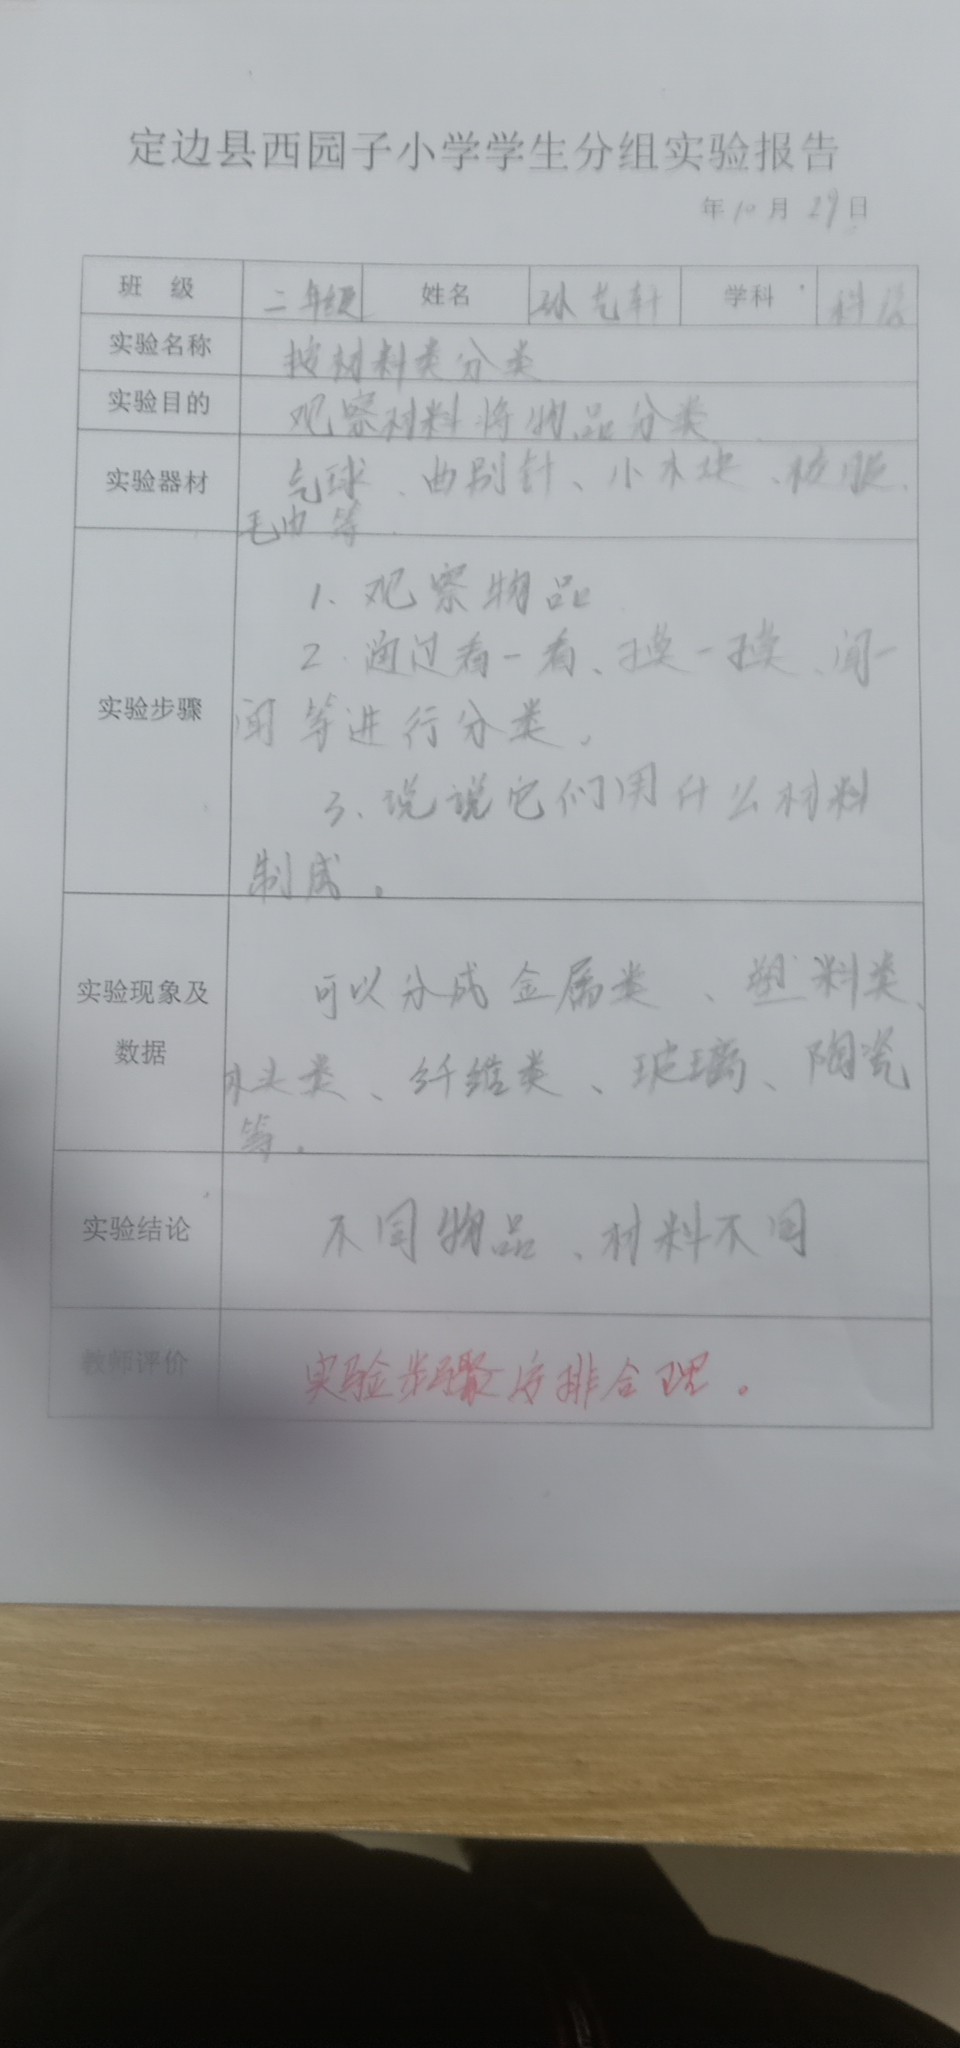 定边县西园子小学学生分组实验报告
年10月29日
班 级 二年级 姓名 孙 轩 学科 科学
实验名称 按材料类分类
实验目的 观察材料将物品分类
实验器材 气球、曲别针、小木块、
毛巾等.
实验步骤
1. 观察物品
2. 通过看一看、摸一摸、闻一
闻等进行分类。
3. 说说它们用什么材料
制成。
实验现象及
数据
可以分成金属类、塑料类、
木头类、纤维类、玻璃、陶瓷
等.
实验结论 不同物品、材料不同
教师评价 实验步骤 排合理。